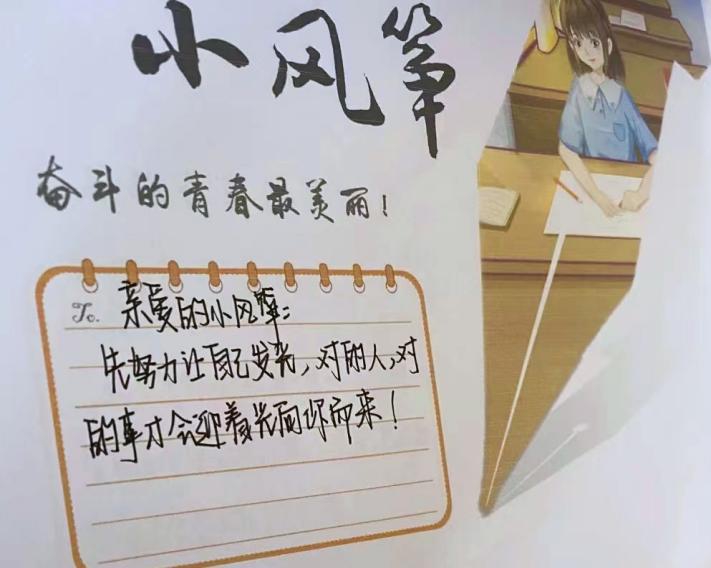 小风筝
奋斗的青春最美丽！
To. 亲爱的小风筝：
先努力让自己发光，对的人，对
的事才会迎着光向你而来！